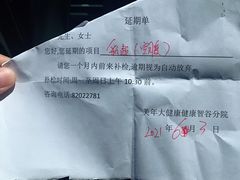 延期单
先生、女士
您好,您延期的项目
请您一个月内前来补检,逾期视为自动放弃
补检时间:周一至周日上午10:30前。
咨询电话:82022781
美年大健康健康智谷分院
2021年6月3日